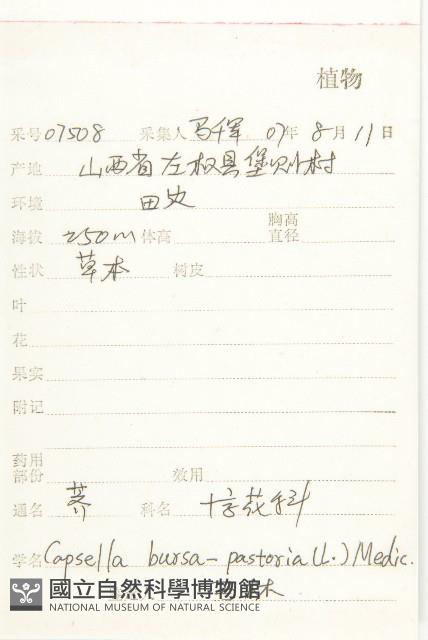 植物
采号 07508 采集人 马千军 07年 8月 11日
产地 山西省左权县堡则村
环境 田边
胸高
海拔 250m 体高 直径
性状 草本 树皮
叶
花
果实
附记
药用
部份 效用
通名 荠 科名 十字花科
学名 Capsella bursa-pastoria (L.) Medic.
國立自然科學博物館
NATIONAL MUSEUM OF NATURAL SCIENCE